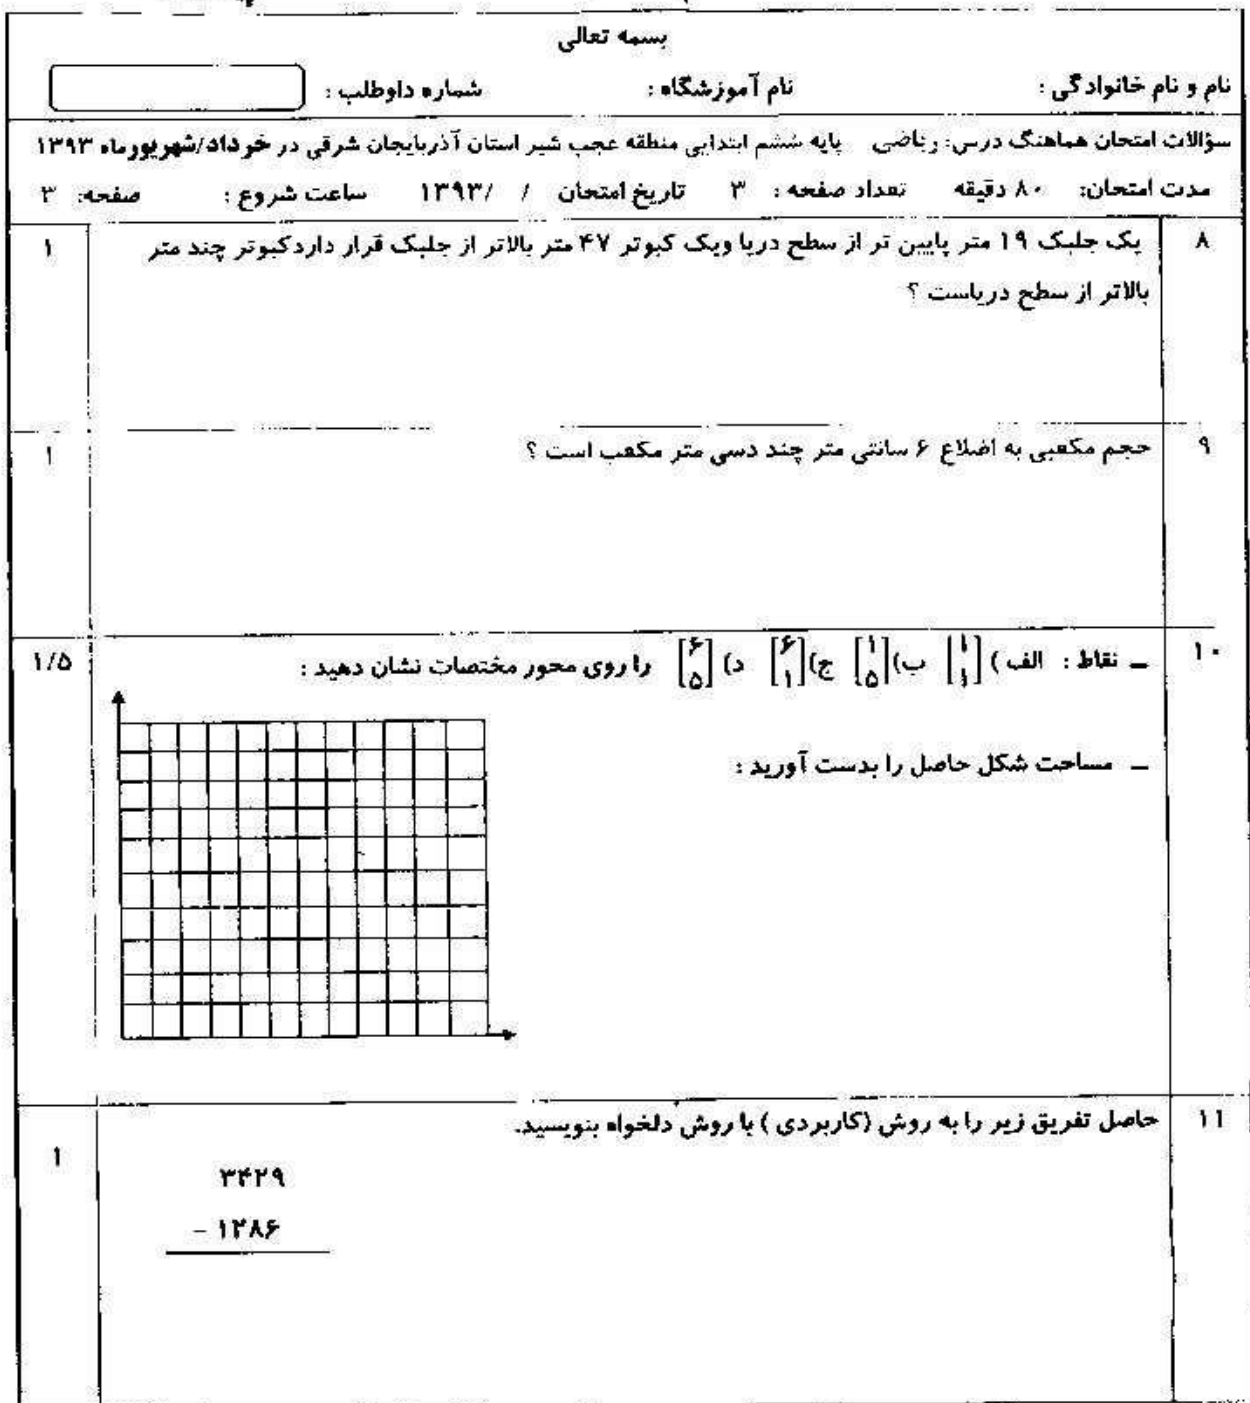 بسمه تعالی
نام و نام خانوادگی : نام آموزشگاه : شماره داوطلب :
سؤالات امتحان هماهنگ درس: ریاضی پایه ششم ابتدایی منطقه عجب شیر استان آذربایجان شرقی در خرداد/شهریورماه ۱۳۹۳
مدت امتحان: ۸۰ دقیقه تعداد صفحه : ۳ تاریخ امتحان / /۱۳۹۳ ساعت شروع : صفحه: ۳
۸ یک جلبک ۱۹ متر پایین تر از سطح دریا ویک کبوتر ۴۷ متر بالاتر از جلبک قرار داردکبوتر چند متر ۱
بالاتر از سطح دریاست ؟
۹ حجم مکعبی به اضلاع ۶ سانتی متر چند دسی متر مکعب است ؟ ۱
۱۰ ـ نقاط : الف ) [۱ ۱] ب) [۱ ۵] ج) [۶ ۱] د) [۶ ۵] را روی محور مختصات نشان دهید : ۱/۵
ـ مساحت شکل حاصل را بدست آورید :
۱۱ حاصل تفریق زیر را به روش (کاربردی ) یا روش دلخواه بنویسید.
۱
۳۴۲۹
– ۱۲۸۶